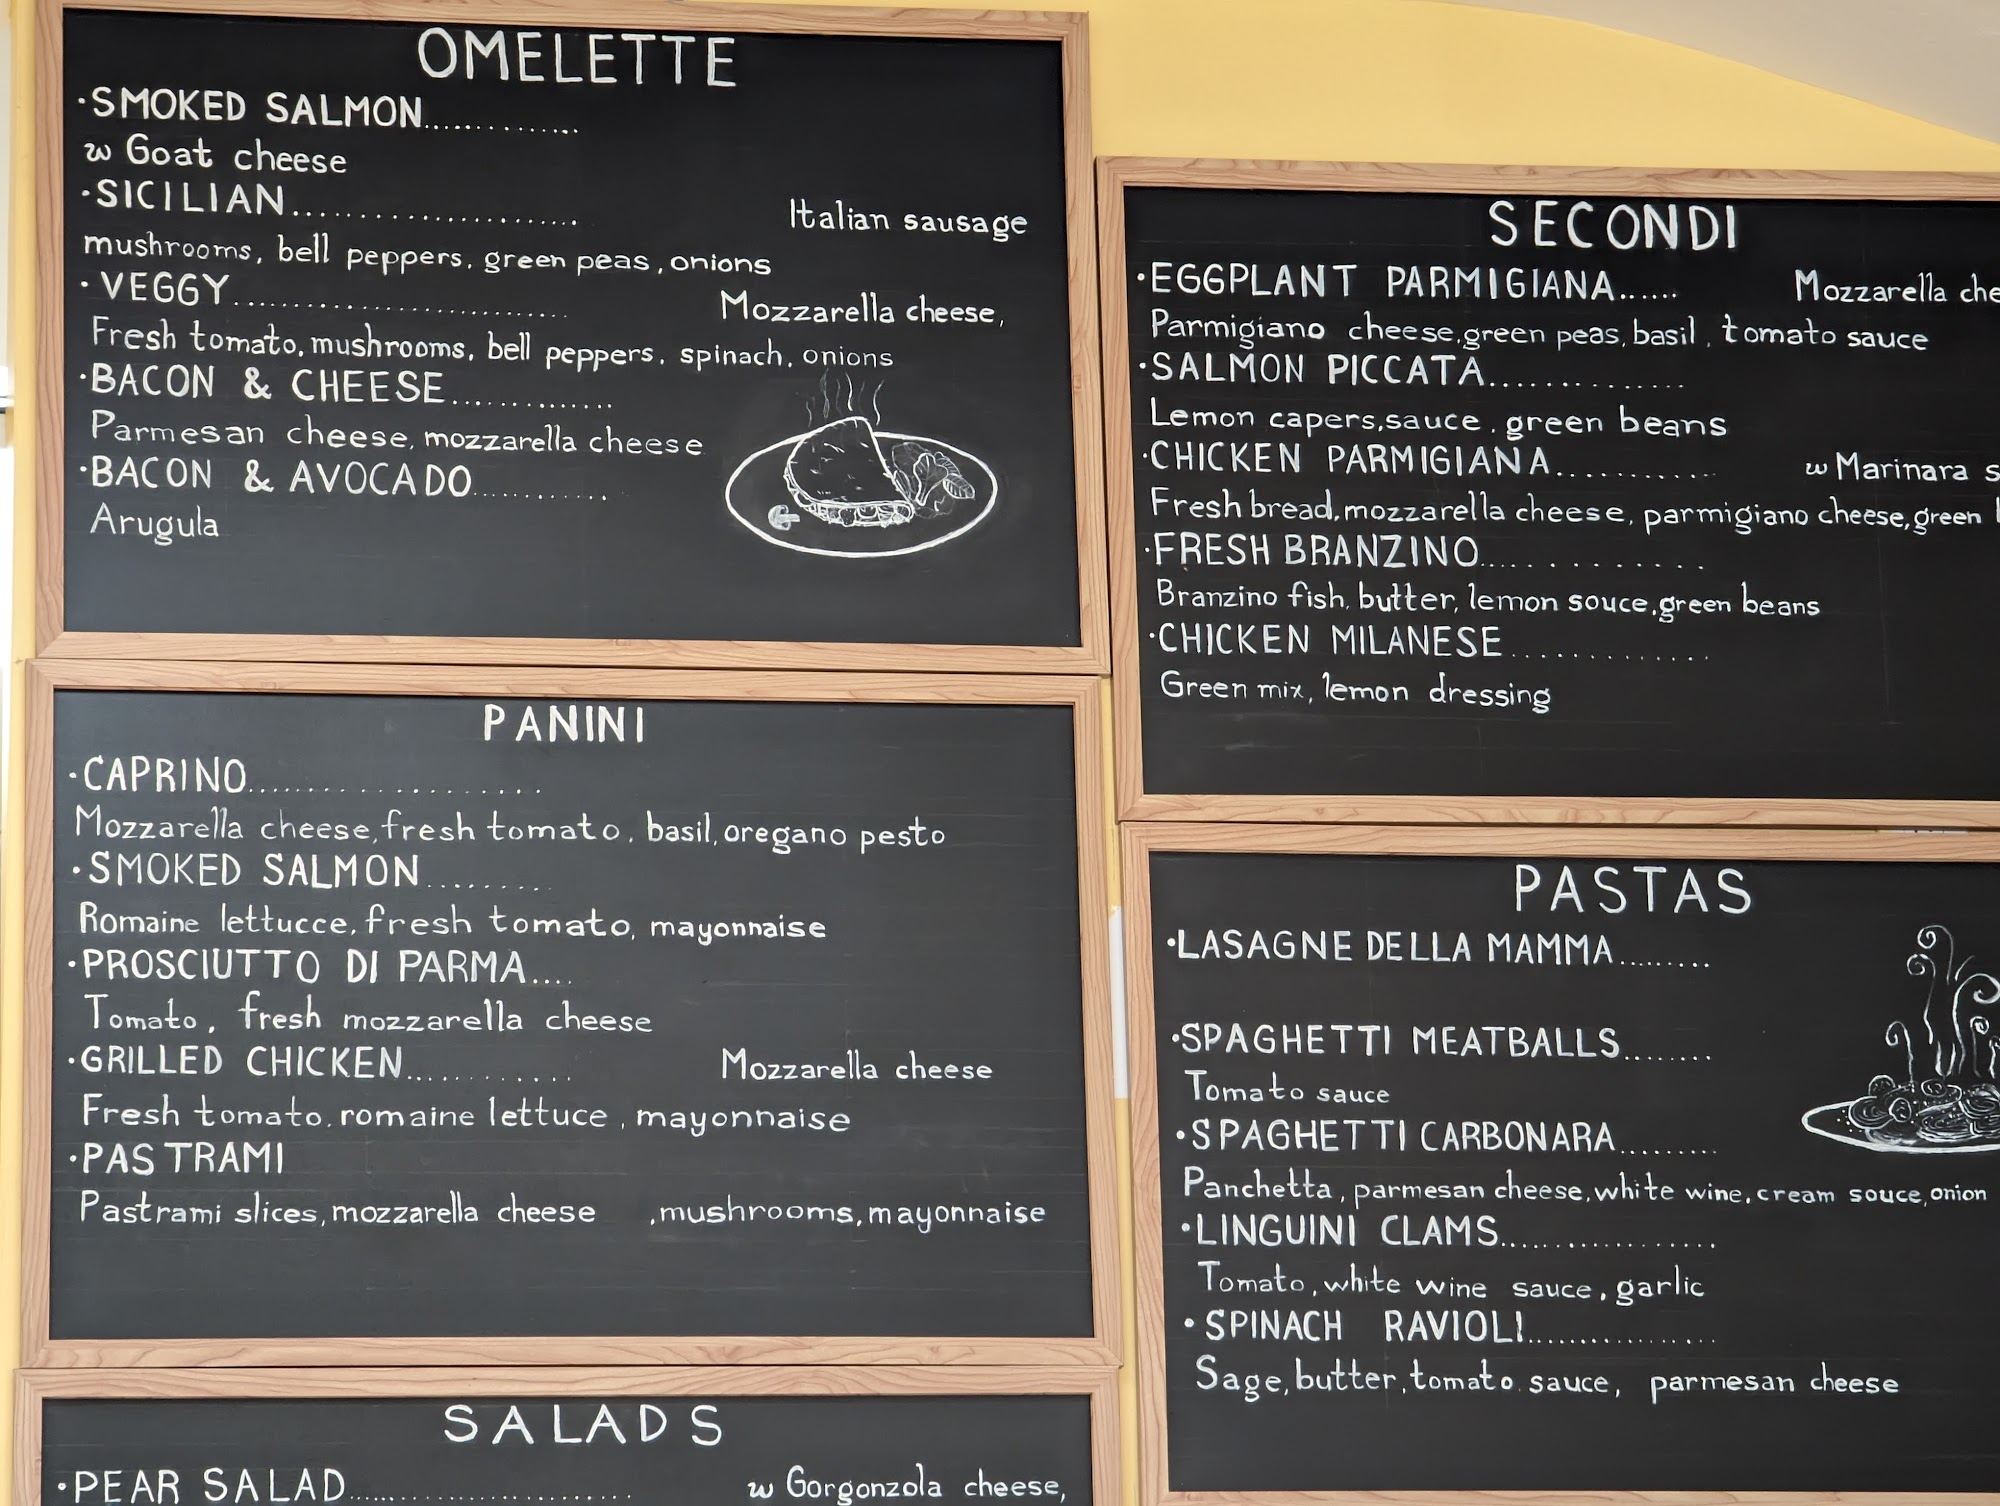 OMELETTE
·SMOKED SALMON..............
w Goat cheese
·SICILIAN...................... Italian sausage
mushrooms, bell peppers, green peas, onions
·VEGGY.......................... Mozzarella cheese,
Fresh tomato, mushrooms, bell peppers, spinach, onions
·BACON & CHEESE.............
Parmesan cheese, mozzarella cheese
·BACON & AVOCADO............
Arugula
PANINI
·CAPRINO...................
Mozzarella cheese, fresh tomato, basil, oregano pesto
·SMOKED SALMON.........
Romaine lettucce, fresh tomato, mayonnaise
·PROSCIUTTO DI PARMA....
Tomato, fresh mozzarella cheese
·GRILLED CHICKEN............ Mozzarella cheese
Fresh tomato, romaine lettuce, mayonnaise
·PASTRAMI
Pastrami slices, mozzarella cheese , mushrooms, mayonnaise
SALADS
·PEAR SALAD........................ w Gorgonzola cheese,
SECONDI
·EGGPLANT PARMIGIANA...... Mozzarella che
Parmigiano cheese, green peas, basil, tomato sauce
·SALMON PICCATA..............
Lemon capers, sauce, green beans
·CHICKEN PARMIGIANA............ w Marinara s
Fresh bread, mozzarella cheese, parmigiano cheese, green
·FRESH BRANZINO..............
Branzino fish, butter, lemon souce, green beans
·CHICKEN MILANESE.............
Green mix, lemon dressing
PASTAS
·LASAGNE DELLA MAMMA.........
·SPAGHETTI MEATBALLS........
Tomato sauce
·SPAGHETTI CARBONARA.........
Panchetta, parmesan cheese, white wine, cream souce, onion
·LINGUINI CLAMS..................
Tomato, white wine sauce, garlic
·SPINACH RAVIOLI................
Sage, butter, tomato sauce, parmesan cheese